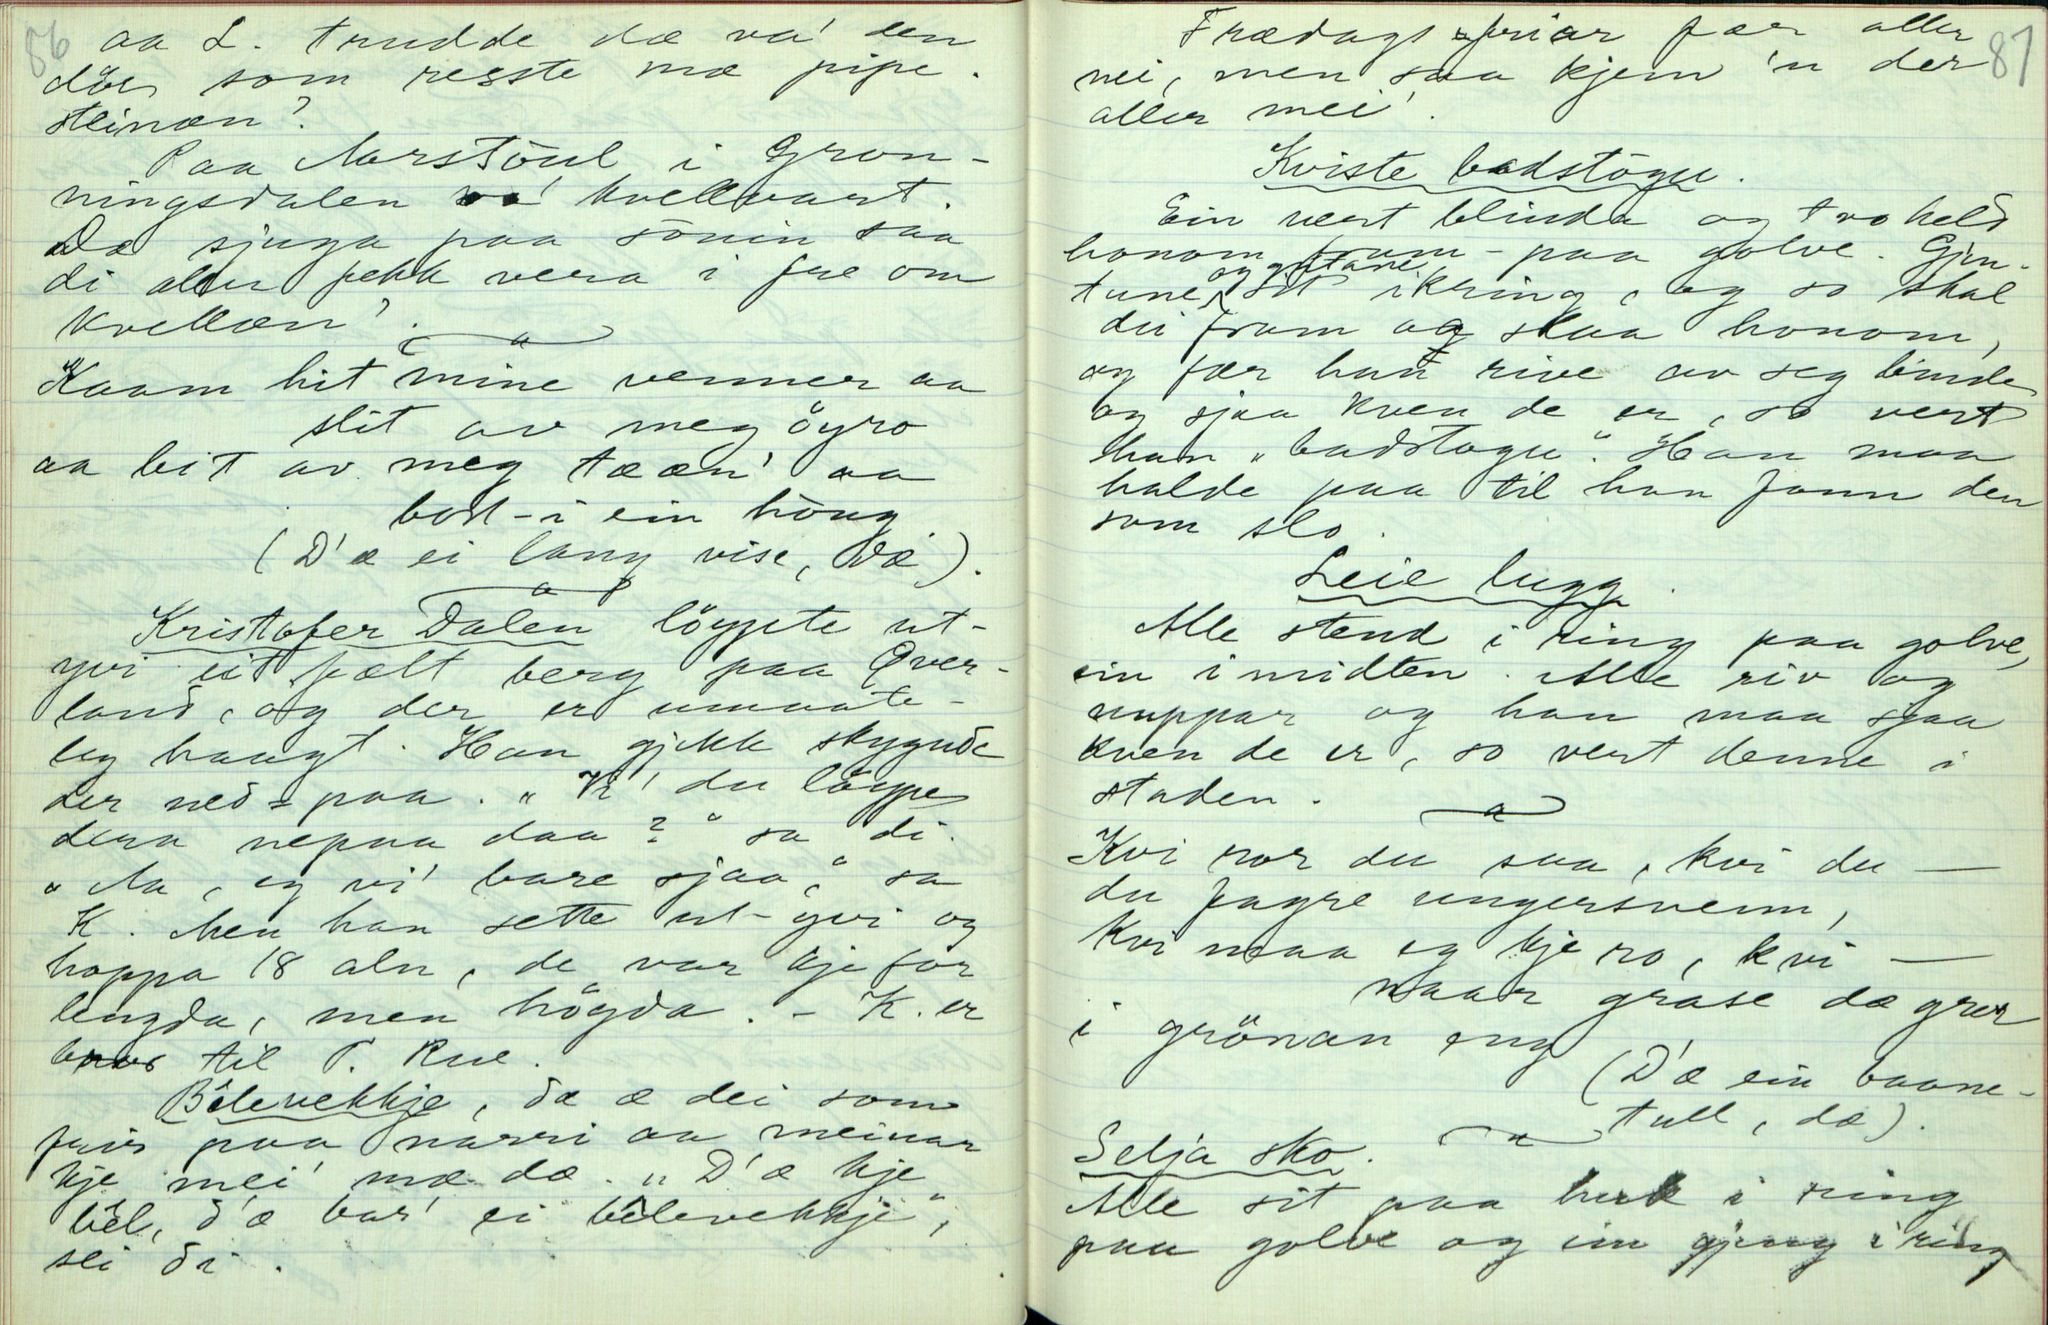 86
aa L. trudde dæ va' den
dör som resste mæ pipe-
steinæn'.
Paa Norstöul i Gron-
ningsdalen va' kvellvart.
Dæ sjuga paa sönin saa
di aller fekk vera i fre om
kvellæn'.
Kaam hit mine venner aa
slit av meg öyro
aa bit av meg tææn' aa
bort-i ein höug
(D'æ ei lang vise, dæ).
Kristofer Dalen löypte ut-
yvi eit fælt berg paa Över-
land, og der er umaate-
leg haagt. Han gjekk skygnde
der ned-paa. "Vi' du löype
dera nepaa daa?" sa di.
"Aa, eg vi' bare sjaa," sa
K. Men han sette ut-yvi og
hoppa 18 aln, de var kje for
lengda, men högda. - K. er
bror til T. Rue.
Bêlevekkje, dæ æ dei som
friar paa narri aa meinar
kje mei' mæ dæ. "D'æ kje
bêl, d'æ bar' ei bêlevekkje",
sei di.
87
Frædags-friar fær aller
nei, men saa kjem 'n der
aller mei'.
Kviste badstōgu.
Ein vert blinda og two held
honom fram-paa golve. Gjen-
tune og gutane sit ikring, og so skal
du fram og slaa honom,
og fær han rive av seg binde
og sjaa kven de er, so vert
han "badstogu". Han maa
halde paa til han fann den
som slo.
Leie lugg.
Alle stend i ring paa golve,
ein i midten. Alle riv og
nuppar og han maa sjaa
kven de er, so vert denne i
staden.
Kvi ror du saa, kvi du —
du fagre ungersveinn,
Kvi maa eg kje ro, kvi —
naar grase dæ gror
i grönan eng
(D'æ ein baane-
tull, dæ).
Selja sko.
Alle sit paa huk i ring
paa golve og ein gjeng i ring